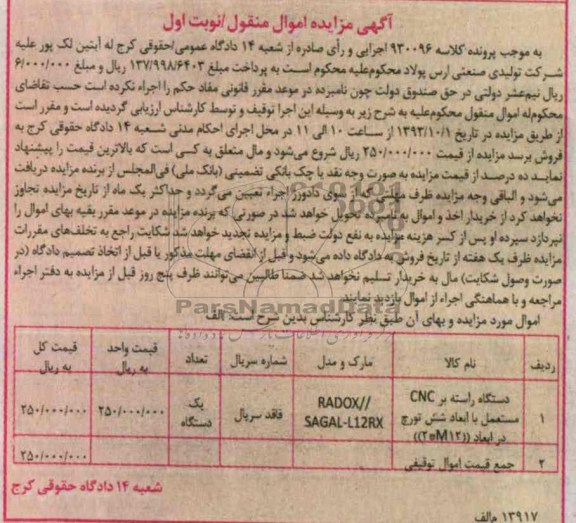 آگهی مزایده اموال منقول/نوبت اول
به موجب پرونده کلاسه ۹۳۰۰۹۶ اجرایی و رأی صادره از شعبه ۱۴ دادگاه عمومی/حقوقی کرج له آبتین لک پور علیه
شرکت تولیدی صنعتی ارس پولاد محکوم‌علیه محکوم است به پرداخت مبلغ ۱۳۷/۹۹۸/۶۴۰۳ ریال و مبلغ ۶/۰۰۰/۰۰۰
ریال نیم‌عشر دولتی در حق صندوق دولت چون نامبرده در موعد مقرر قانونی مفاد حکم را اجراء نکرده است حسب تقاضای
محکوم‌له اموال منقول محکوم‌علیه به شرح زیر به وسیله این اجرا توقیف و توسط کارشناس ارزیابی گردیده است و مقرر است
از طریق مزایده در تاریخ ۱۳۹۳/۱۰/۱ از ساعت ۱۰ الی ۱۱ در محل اجرای احکام مدنی شعبه ۱۴ دادگاه حقوقی کرج به
فروش برسد مزایده از قیمت ۲۵۰/۰۰۰/۰۰۰ ریال شروع می‌شود و مال متعلق به کسی است که بالاترین قیمت را پیشنهاد
نماید ده درصد از قیمت مزایده به صورت وجه نقد یا چک بانکی تضمینی (بانک ملی) فی‌المجلس از برنده مزایده دریافت
می‌شود و الباقی وجه مزایده ظرف مدتی که از سوی دادورز اجراء تعیین می‌گردد و حداکثر یک ماه از تاریخ مزایده تجاوز
نخواهد کرد از خریدار اخذ و اموال به نامبرده تحویل خواهد شد در صورتی که برنده مزایده در موعد مقرر بقیه بهای اموال را
نپردازد سپرده او پس از کسر هزینه مزایده به نفع دولت ضبط و مزایده تجدید خواهد شد شکایت راجع به تخلف‌های مقررات
مزایده ظرف یک هفته از تاریخ فروش به دادگاه داده می‌شود و قبل از انقضای مهلت مذکور یا قبل از اتخاذ تصمیم دادگاه (در
صورت وصول شکایت) مال به خریدار تسلیم نخواهد شد ضمناً طالبین می‌توانند ظرف پنج روز قبل از مزایده به دفتر اجراء
مراجعه و با هماهنگی اجراء از اموال بازدید نمایند
اموال مورد مزایده و بهای آن طبق نظر کارشناس بدین شرح است: الف
ParsNamadData
ردیف نام کالا مارک و مدل شماره سریال تعداد قیمت واحد به ریال قیمت کل به ریال
۱ دستگاه راسته بر CNC مستعمل با ابعاد شش تورچ در ابعاد RADOX// SAGAL-L12RX فاقد سریال یک دستگاه ۲۵۰/۰۰۰/۰۰۰ ۲۵۰/۰۰۰/۰۰۰
۲ جمع قیمت اموال توقیفی ۲۵۰/۰۰۰/۰۰۰
شعبه ۱۴ دادگاه حقوقی کرج
۱۳۹۱۷ م‌الف